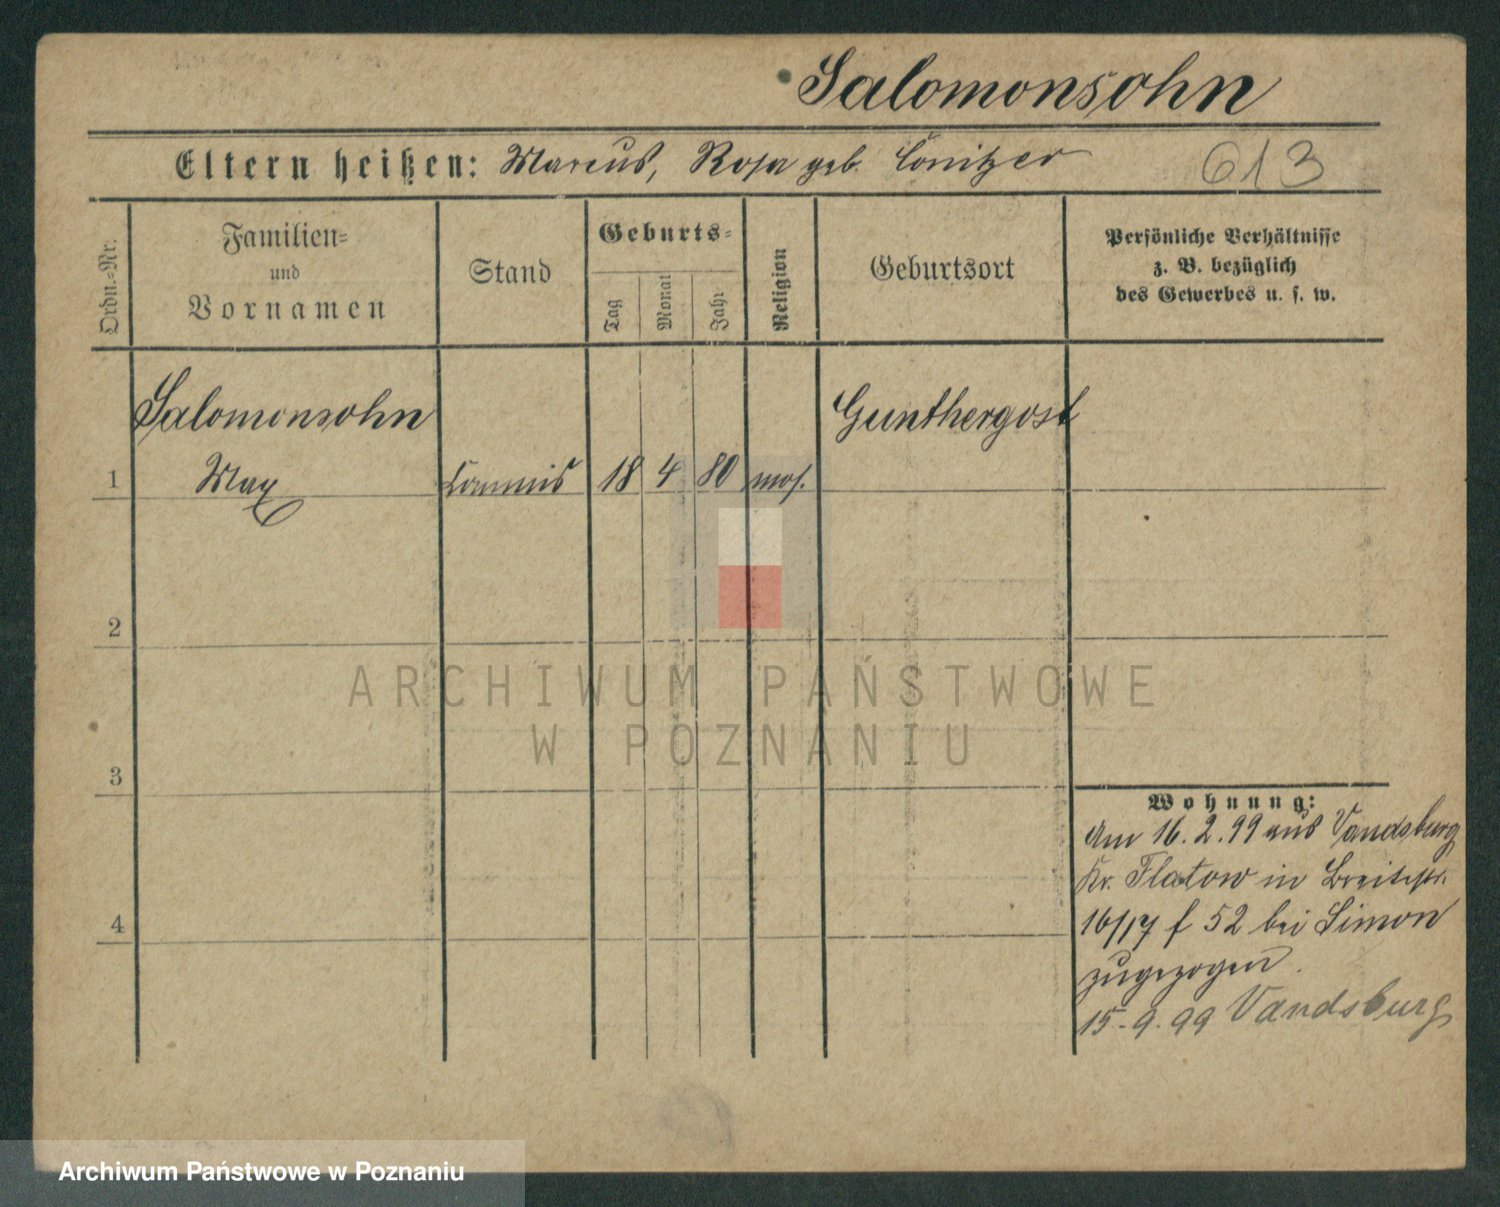 Salomonsohn
Eltern heißen: Marcus, Rosa geb. Conitzer 613
Ordn.-Nr.
Familien-
und
Vornamen
Stand
Geburts-
Tag
Monat
Jahr
Religion
Geburtsort
Persönliche Verhältnisse
z. B. bezüglich
des Gewerbes u. s. w.
Salomonsohn Gunthergost
1 Max Commis 18 4 80 mos.
2
3
4
Wohnung:
Am 16.2.99 aus Vandsburg
Kr. Flatow in Breitestr.
16/17 f 52 bei Simon
zugezogen.
15-9.99 Vandsburg
ARCHIWUM PAŃSTWOWE
W POZNANIU
Archiwum Państwowe w Poznaniu